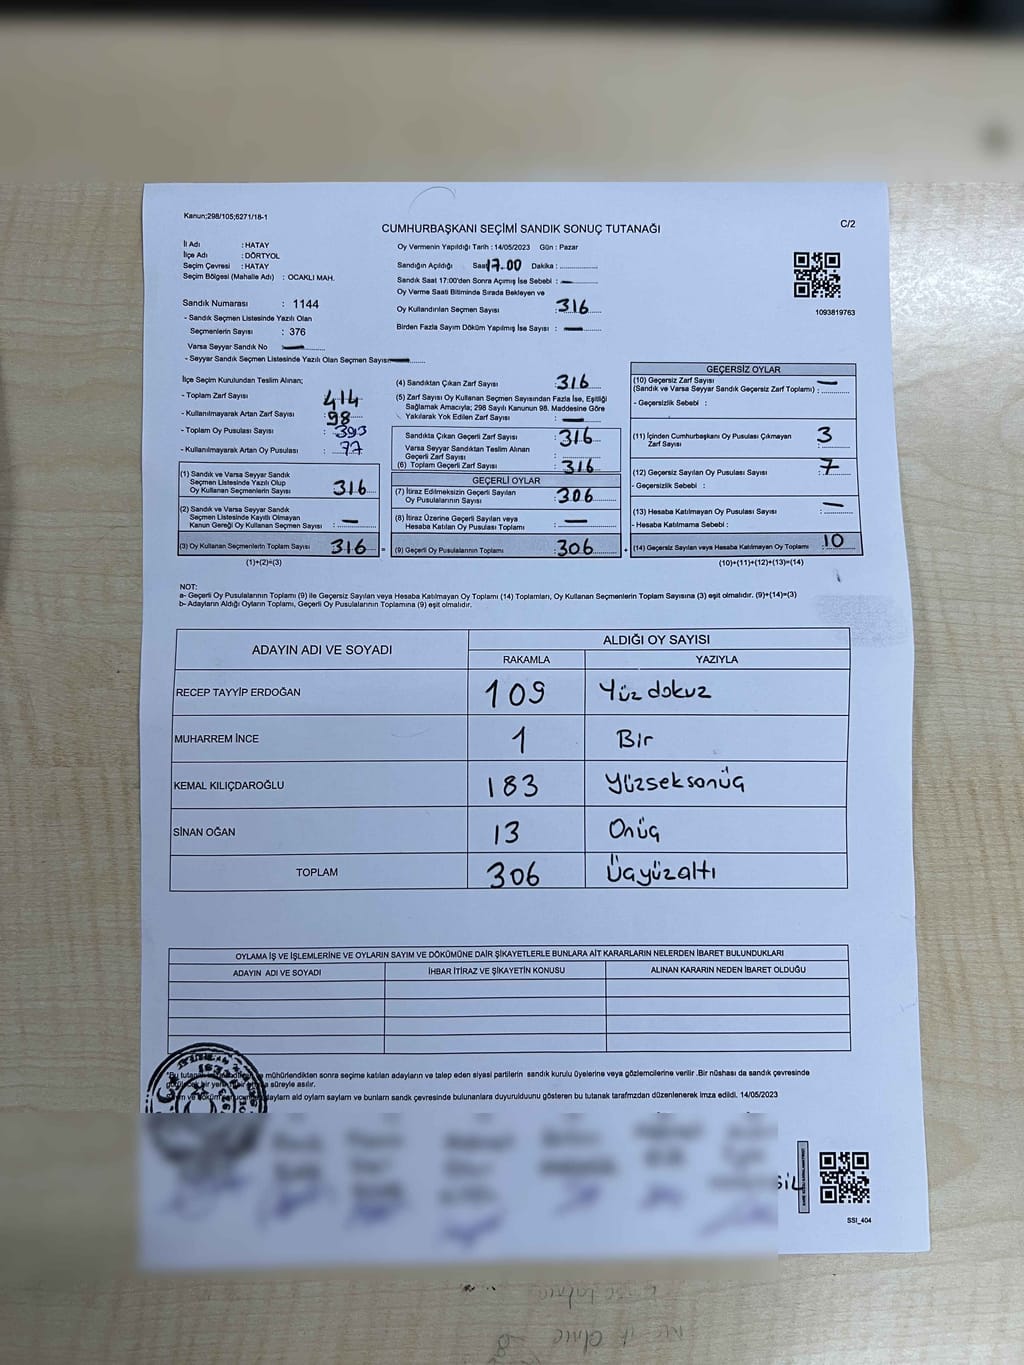 Kanun;298/105;6271/18-1
CUMHURBAŞKANI SEÇİMİ SANDIK SONUÇ TUTANAĞI
C/2
İl Adı : HATAY
İlçe Adı : DÖRTYOL
Seçim Çevresi : HATAY
Seçim Bölgesi (Mahalle Adı) : OCAKLI MAH.
Sandık Numarası : 1144
- Sandık Seçmen Listesinde Yazılı Olan
Seçmenlerin Sayısı : 376
Varsa Seyyar Sandık No
- Seyyar Sandık Seçmen Listesinde Yazılı Olan Seçmen Sayısı
Oy Vermenin Yapıldığı Tarih : 14/05/2023 Gün : Pazar
Sandığın Açıldığı Saat 17.00 Dakika :
Sandık Saat 17:00'den Sonra Açımış İse Sebebi :
Oy Verme Saati Bitiminde Sırada Bekleyen ve
Oy Kullandırılan Seçmen Sayısı : 316
Birden Fazla Sayım Döküm Yapılmış İse Sayısı :
1093819763
İlçe Seçim Kurulundan Teslim Alınan;
- Toplam Zarf Sayısı : 414
- Kullanılmayarak Artan Zarf Sayısı : 98
- Toplam Oy Pusulası Sayısı : 393
- Kullanılmayarak Artan Oy Pusulası : 77
(1) Sandık ve Varsa Seyyar Sandık
Seçmen Listesinde Yazılı Olup
Oy Kullanan Seçmenlerin Sayısı : 316
(2) Sandık ve Varsa Seyyar Sandık
Seçmen Listesinde Kayıtlı Olmayan
Kanun Gereği Oy Kullanan Seçmen Sayısı :
(3) Oy Kullanan Seçmenlerin Toplam Sayısı : 316
(1)+(2)=(3)
(4) Sandıktan Çıkan Zarf Sayısı : 316
(5) Zarf Sayısı Oy Kullanan Seçmen Sayısından Fazla İse, Eşitliği
Sağlamak Amacıyla; 298 Sayılı Kanunun 98. Maddesine Göre
Yakılarak Yok Edilen Zarf Sayısı :
Sandıkta Çıkan Geçerli Zarf Sayısı : 316
Varsa Seyyar Sandıktan Teslim Alınan
Geçerli Zarf Sayısı :
(6) Toplam Geçerli Zarf Sayısı : 316
GEÇERLİ OYLAR
(7) İtiraz Edilmeksizin Geçerli Sayılan
Oy Pusulalarının Sayısı : 306
(8) İtiraz Üzerine Geçerli Sayılan veya
Hesaba Katılan Oy Pusulası Toplamı :
= (9) Geçerli Oy Pusulalarının Toplamı : 306
GEÇERSİZ OYLAR
(10) Geçersiz Zarf Sayısı
(Sandık ve Varsa Seyyar Sandık Geçersiz Zarf Toplamı) :
- Geçersizlik Sebebi :
(11) İçinden Cumhurbaşkanı Oy Pusulası Çıkmayan
Zarf Sayısı : 3
(12) Geçersiz Sayılan Oy Pusulası Sayısı : 7
- Geçersizlik Sebebi :
(13) Hesaba Katılmayan Oy Pusulası Sayısı :
- Hesaba Katılmama Sebebi :
+ (14) Geçersiz Sayılan veya Hesaba Katılmayan Oy Toplamı : 10
(10)+(11)+(12)+(13)=(14)
NOT:
a- Geçerli Oy Pusulalarının Toplamı (9) ile Geçersiz Sayılan veya Hesaba Katılmayan Oy Toplamı (14) Toplamları, Oy Kullanan Seçmenlerin Toplam Sayısına (3) eşit olmalıdır. (9)+(14)=(3)
b- Adayların Aldığı Oyların Toplamı, Geçerli Oy Pusulalarının Toplamına (9) eşit olmalıdır.
ADAYIN ADI VE SOYADI ALDIĞI OY SAYISI
RAKAMLA YAZIYLA
RECEP TAYYİP ERDOĞAN 109 Yüz dokuz
MUHARREM İNCE 1 Bir
KEMAL KILIÇDAROĞLU 183 Yüzseksenüç
SİNAN OĞAN 13 Onüç
TOPLAM 306 Üçyüzaltı
OYLAMA İŞ VE İŞLEMLERİNE VE OYLARIN SAYIM VE DÖKÜMÜNE DAİR ŞİKAYETLERLE BUNLARA AİT KARARLARIN NELERDEN İBARET BULUNDUKLARI
ADAYIN ADI VE SOYADI İHBAR İTİRAZ VE ŞİKAYETİN KONUSU ALINAN KARARIN NEDEN İBARET OLDUĞU
mühürlendikten sonra seçime katılan adayların ve talep eden siyasi partilerin sandık kurulu üyelerine veya gözlemcilerine verilir .Bir nüshası da sandık çevresinde
süreyle asılır.
ald oylam saylam ve bunlarn sandk çevresinde bulunanlara duyurulduunu gösteren bu tutanak tarafmzdan düzenlenerek imza edildi. 14/05/2023
SSI_404